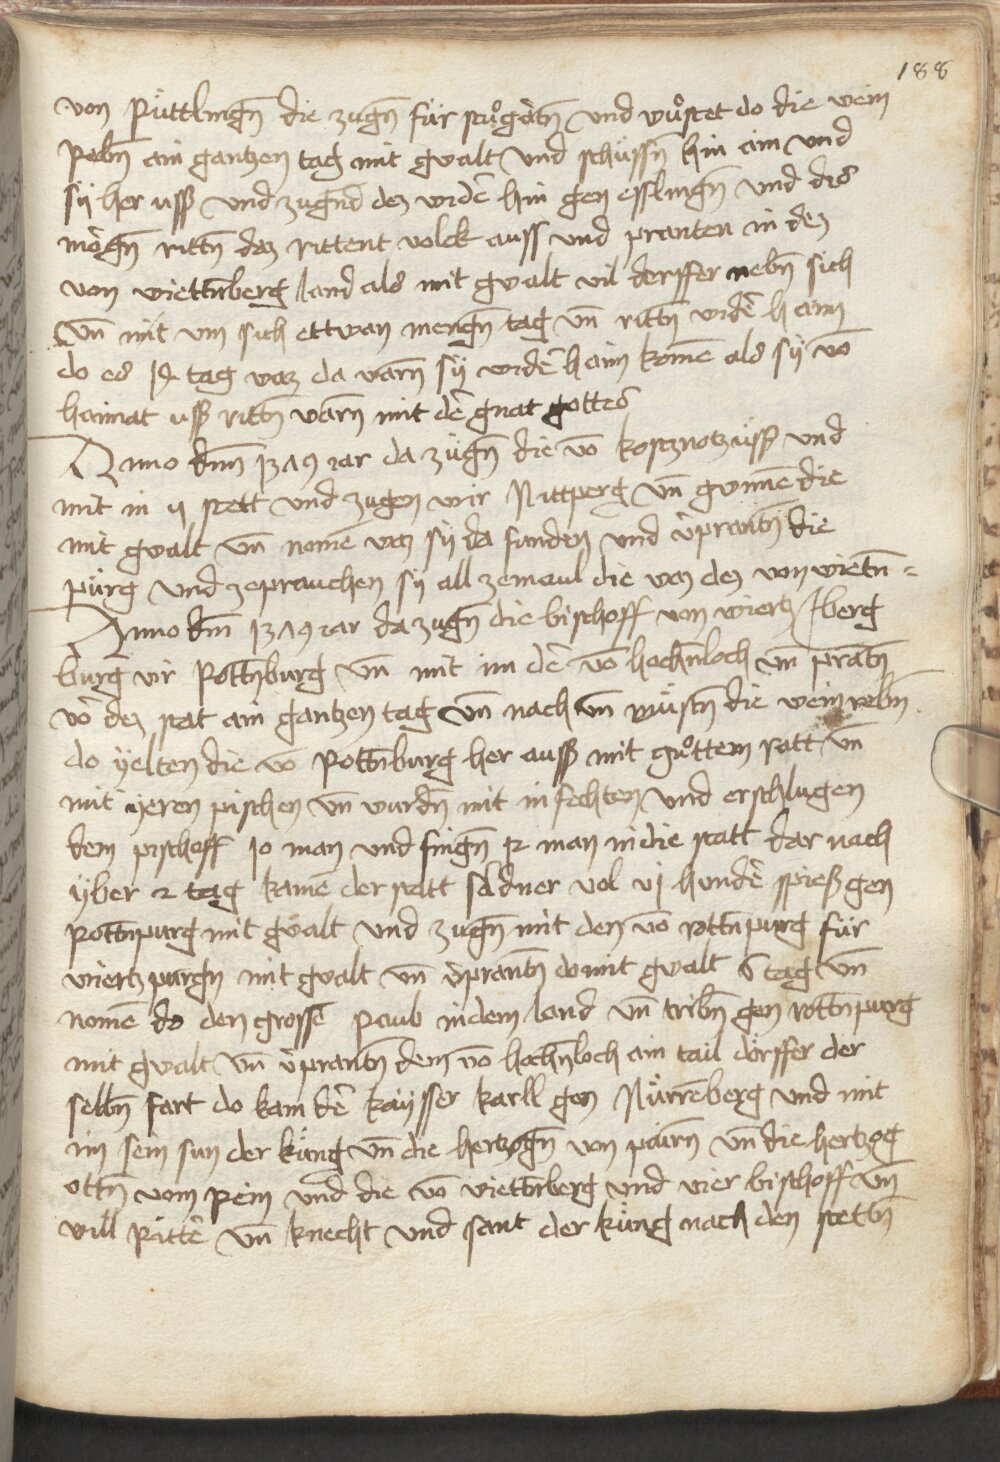 188
von Rüttlingn̄ die zugn̄ für stuͦgartn̄ und wuͦstet do die wein
Rebn̄ ain gantzen tag mit gwalt und schussn̄ hin ain und
sy her uß und zugnd dez widē hin gen esslingn̄ und des
mōrgn̄ rittn̄ daz rittent volck auss und pranten in dez
von wirttnberg land als mit gwalt vil derffer nebn̄ sich
vn̄ mit um sich ettwan mengn̄ tag vn̄ rittn̄ widē haim
do es tag waz da warn̄ sy widē haim komē als sy vō
haimat uß rittn̄ warn̄ mit dē gnat gottes
Anno dm̄ iar da zugn̄ die vō kostnotz uß und
mit in stett und zugen wir Rittperg vn̄ gwunē die
mit gwalt vn̄ nomē waz sy da funden und v̄prantn̄ die
purg und zeprauchen sy all zemaul die waz dez von wirtn̄=
berg
Anno dm̄ iar da zugn̄ die bischoff von wiertz
burg vir Rottn̄burg vn̄ mit im dē vō hochn̄loch vn̄ prātn̄
vō dez stat ain gantzen tag vn̄ nach vn̄ wuͤstn̄ die wein rebn̄
do ÿelten die vō Rottn̄burg her auß mit guͦttem ratt vn̄
mit ÿeren pischen vn̄ wurdn̄ mit in fechten und erschlugen
dem pischoff 10 man und fingn̄ 12 man in die statt dar nach
ÿber 2 tag kamē der stett soldner vol vj hundē spieß gen
Rottn̄purg mit gwalt und zugn̄ mit den vō rottn̄purg für
wiertzpurgn mit gwalt vn̄ v̄prantn̄ do mit gwalt 6 tag vn̄
nomē do den grossē Raub in dem land vn̄ tribn̄ gen rottn̄purg
mit gwalt vn̄ v̄prantn̄ dem vō hochn̄loch ain tail dörffer der
selbn̄ fart do kam dē kaÿsser karll gen Nürrēberg und mit
im sein sun der küng vn̄ die hertzogn̄ von pairn̄ vn̄ die hertzog
ottn̄ vom Rein und die vō wirttn̄berg und vier bischoff vn̄
vill Rittē vn̄ knecht und sant der küng nach den stettn̄